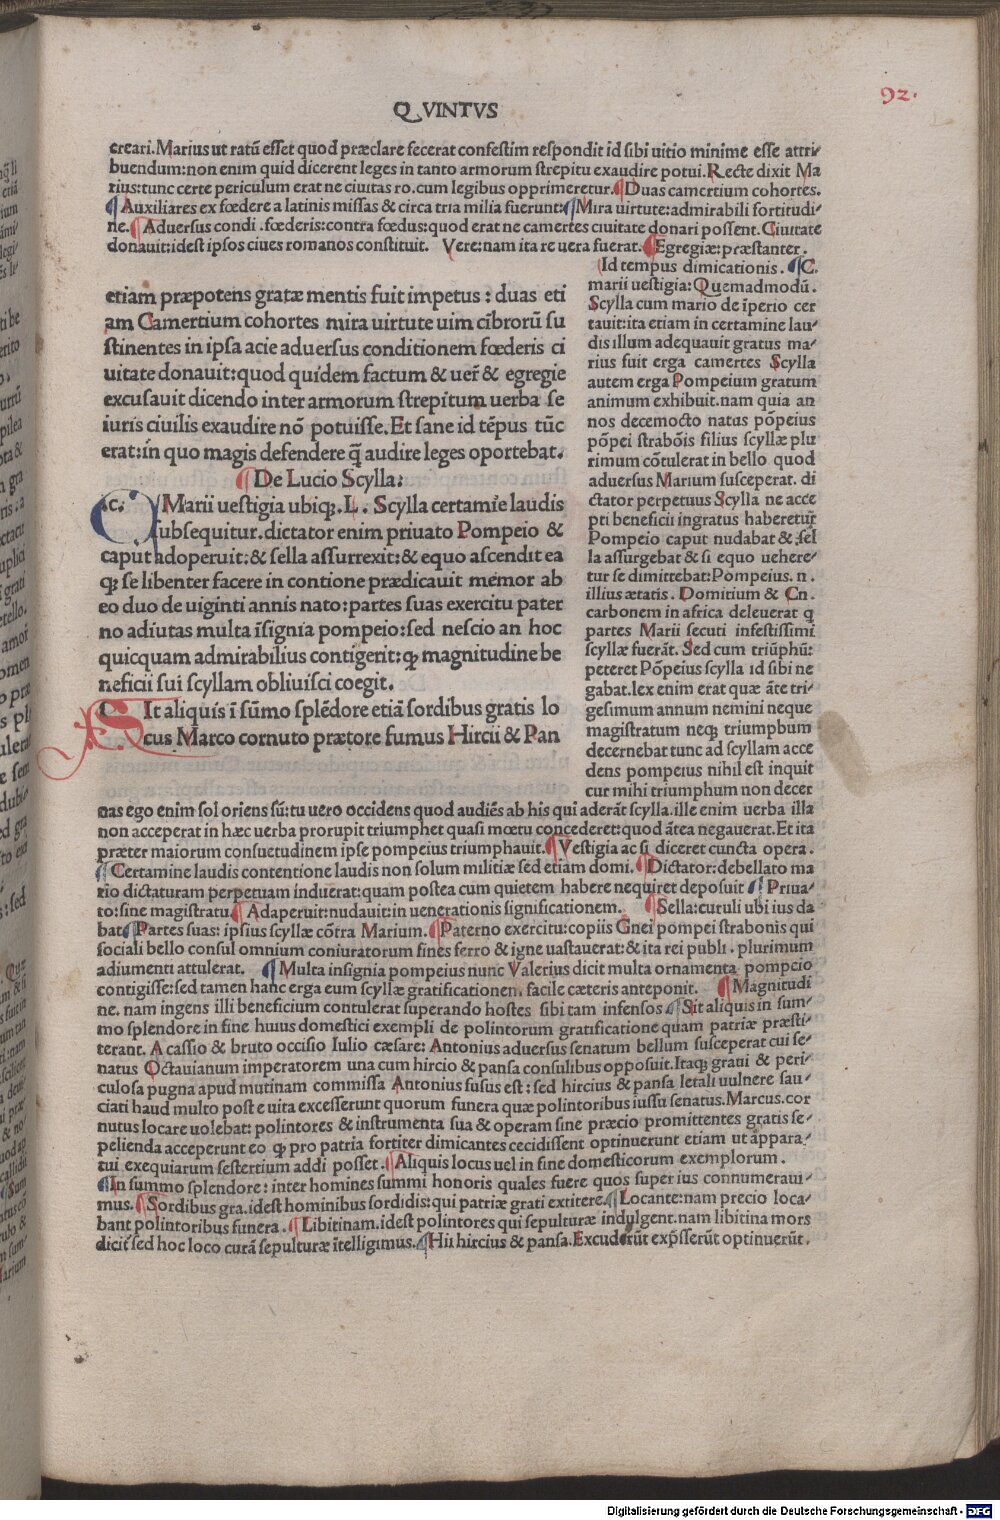 QVINTVS
92.
creari.Marius ut ratū esset quod præclare fecerat confestim respondit id sibi uitio minime esse attri⸗
buendum:non enim quid dicerent leges in tanto armorum strepitu exaudire potui.Recte dixit Ma
rius:tunc certe periculum erat ne ciuitas ro.cum legibus opprimeretur.¶Duas camertium cohortes.
¶Auxiliares ex fœdere a latinis missas & circa tria milia fuerunt:¶Mira uirtute:admirabili fortitudi⸗
ne.¶Aduersus condi .fœderis:contra fœdus:quod erat ne camertes ciuitate donari possent.Ciuitate
donauit:idest ipsos ciues romanos constituit. Vere:nam ita re uera fuerat.¶Egregiæ:præstanter.
etiam præpotens gratæ mentis fuit impetus : duas eti
am Camertium cohortes mira uirtute uim cībrorū su
stinentes in ipsa acie aduersus conditionem fœderis ci
uitate donauit:quod quidem factum & uer& & egregie
excusauit dicendo inter armorum strepitum uerba se
iuris ciuilis exaudire nō potuisse.Et sane id tēpus tūc
erat:in quo magis defendere q̄ audire leges oportebat.
¶De Lucio Scylla:
C. Marii uestigia ubiq;.L. Scylla certamīe laudis
subsequitur.dictator enim priuato Pompeio &
caput adoperuit:& sella assurrexit:& equo ascendit ea
q; se libenter facere in contione prædicauit memor ab
eo duo de uiginti annis nato:partes suas exercitu pater
no adiutas multa īsignia pompeio:sed nescio an hoc
quicquam admirabilius contigerit:q; magnitudine be
neficii sui scyllam obliuisci coegit.
SIt aliquis ī sūmo splēdore etiā sordibus gratis lo
cus Marco cornuto prætore fumus Hircii & Pan
¶Id tempus dimicationis.¶C.
marii uestigia:Quemadmodū.
Scylla cum mario de īperio cer
tauit:ita etiam in certamine lau⸗
dis illum adequauit gratus ma⸗
rius fuit erga camertes Scylla
autem erga Pompeium gratum
animum exhibuit.nam quia an
nos decemocto natus pōpeius
pōpei strabōis filius scyllæ plu
rimum cōtulerat in bello quod
aduersus Marium susceperat. di
ctator perpetuus Scylla ne acce
pti beneficii ingratus haberetur
Pompeio caput nudabat & sel
la assurgebat & si equo uehere⸗
tur se dimittebat:Pompeius. n.
illius ætatis. Domitium & Cn.
carbonem in africa deleuerat q
partes Marii secuti infestissimi
scyllæ fuerāt. Sed cum triūphū:
peteret Pōpeius scylla id sibi ne
gabat.lex enim erat quæ āte tri⸗
gesimum annum nemini neque
magistratum neq; triumpbum
decernebat tunc ad scyllam acce
dens pompeius nihil est inquit
cur mihi triumphum non decer
nas ego enim sol oriens sū:tu uero occidens quod audiēs ab his qui aderāt scylla.ille enim uerba illa
non acceperat in hæc uerba prorupit triumphet quasi mœtu concederet:quod ātea negauerat.Et ita
præter maiorum consuetudinem ipse pompeius triumphauit.¶Vestigia ac si diceret cuncta opera.
¶Certamine laudis contentione laudis non solum militiæ sed etiam domi.¶Dictator:debellato ma
rio dictaturam perpetuam induerat:quam postea cum quietem habere nequiret deposuit ¶Priua⸗
to:sine magistratu¶ Adaperuit:nudauit:in uenerationis significationem. ¶Sella:curuli ubi ius da
bat¶Partes suas: ipsius scyllæ cōtra Marium.¶Paterno exercitu:copiis Gnei pompei strabonis qui
sociali bello consul omnium coniuratorum fines ferro & igne uastauerat:& ita rei publi. plurimum
adiumenti attulerat. ¶Multa insignia pompeius nunc Valerius dicit multa ornamenta pompeio
contigisse:sed tamen hanc erga eum scyllæ gratificationem. facile cæteris anteponit. ¶Magnitudi
ne. nam ingens illi beneficium contulerat superando hostes sibi tam infensos ¶Sit aliquis in sum⸗
mo splendore in fine huius domestici exempli de polintorum gratificatione quam patriæ præsti⸗
terant. A cassio & bruto occisio Iulio cæsare: Antonius aduersus senatum bellum susceperat cui se⸗
natus Octauianum imperatorem una cum hircio & pansa consulibus opposuit.Itaq; graui & peri⸗
culosa pugna apud mutinam commissa Antonius fusus est : sed hircius & pansa letali uulnere sau⸗
ciati haud multo post e uita excesserunt quorum funera quæ polintoribus iussu senatus.Marcus.cor
nutus locare uolebat: polintores & instrumenta sua & operam sine præcio promittentes gratis se⸗
pelienda acceperunt eo q; pro patria fortiter dimicantes cecidissent optinuerunt etiam ut appara⸗
tui exequiarum sestertium addi posset.¶Aliquis locus uel in fine domesticorum exemplorum.
¶In summo splendore : inter homines summi honoris quales fuere quos superius connumeraui⸗
mus.¶Sordibus gra.idest hominibus sordidis:qui patriæ grati extitere.¶Locante:nam precio loca⸗
bant polintoribus funera.¶Libitinam.idest polintores qui sepulturæ indulgent.nam libitina mors
dicit̄ sed hoc loco curā sepulturæ ītelligimus.¶Hii hircius & pansa.Excuderūt exp̄sserūt optinuerūt.
Digitalisierung gefördert durch die Deutsche Forschungsgemeinschaft - DFG